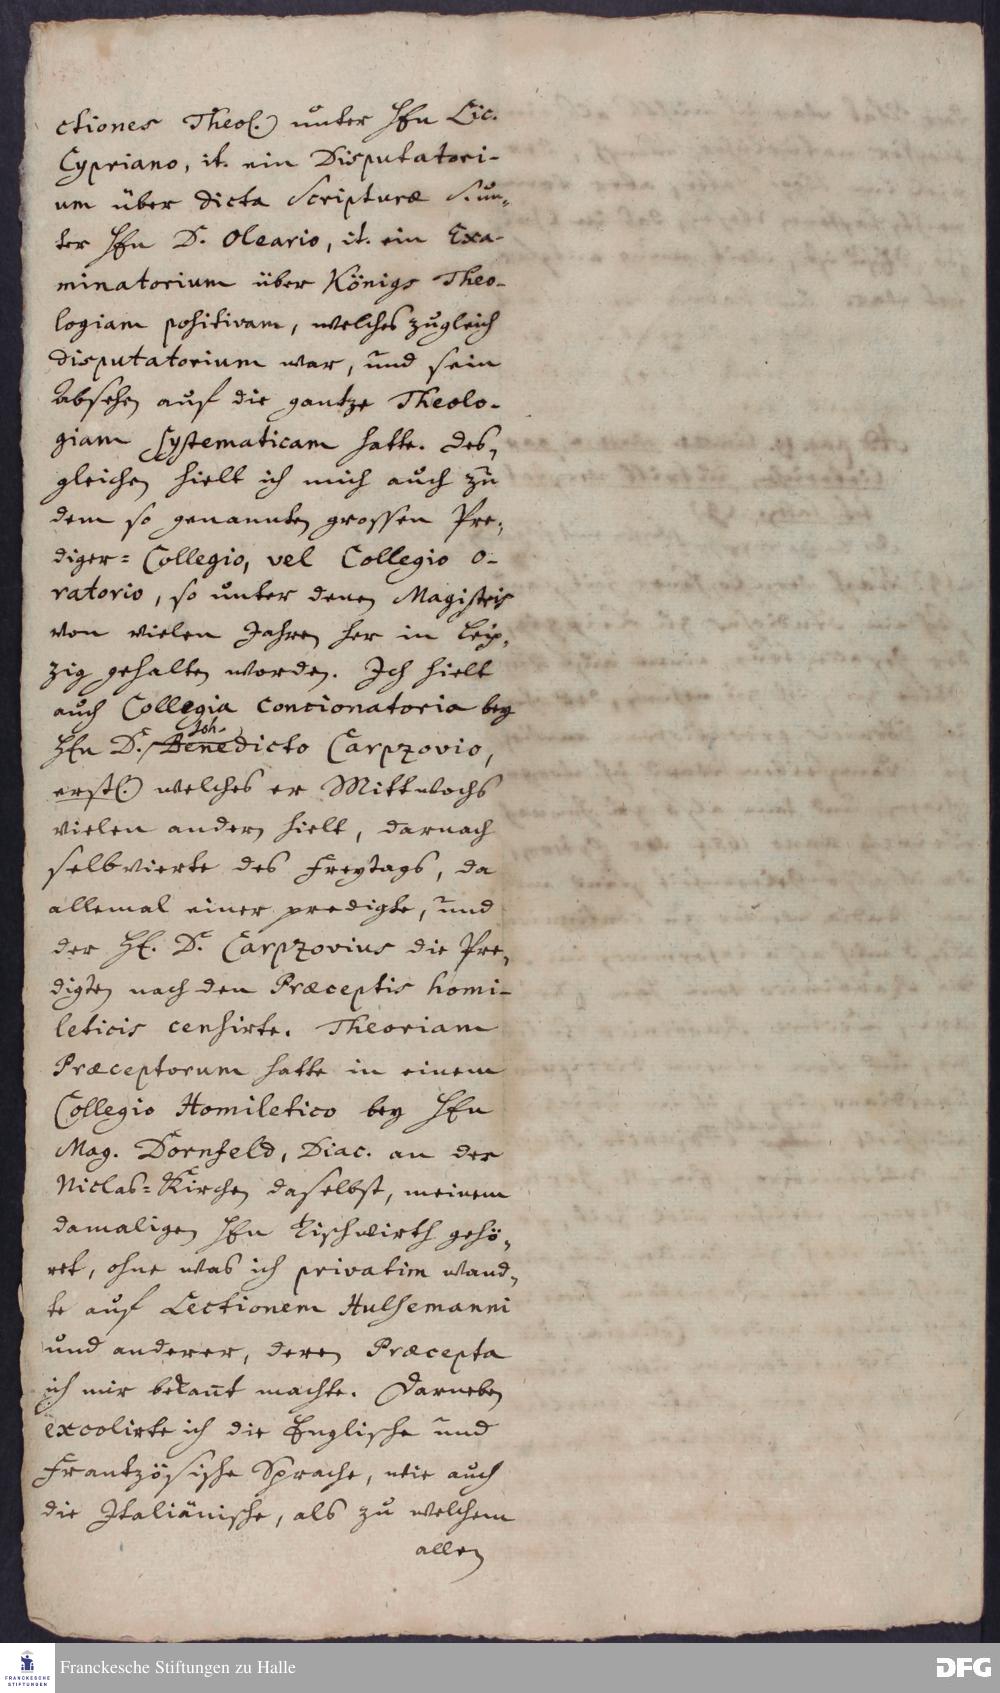 ctiones Theol. unter Hn Lic.
Cypriano, it. ein Disputatori-
um über dicta Scripturæ S. un-
ter Hn D. Oleario, it. ein Exa-
minatorium über Königs Theo-
logiam positivam, welches zugleich
disputatorium war, und sein
Absehen auf die gantze Theolo-
giam Systematicam hatte. Des-
gleichen hielt ich mich auch zu
dem so genannten grossen Pre-
diger-Collegio, vel Collegio o-
ratorio, so unter denen Magistris
von vielen Jahren her in Leip-
zig gehalten worden. Ich hielt
auch Collegia concionatoria bey
Joh.
Hn D. Benedicto Carpzovio,
erstl. welches er Mittwochs
vielen andern hielt, darnach
selbvierte des Freytags, da
allemal einer predigte, und
der H. D. Carpzovius die Pre-
digten nach den Præceptis homi-
leticis censirte. Theoriam
Præceptorum hatte in einem
Collegio Homiletico bey Hn
Mag. Dornfeld, Diac. an der
Niclas-Kirchen daselbst, meinem
damaligen Hn Tischwirth gehö-
ret, ohne was ich privatim wand-
te auf Lectionem Hulsemanni
und anderer, deren Præcepta
ich mir bekañt machte. Darneben
excolirte ich die Englische und
Frantzösische Sprache, wie auch
die Italiänische, als zu welchem
allen
Franckesche Stiftungen zu Halle
FRANCKESCHE
STIFTUNGEN
DFG